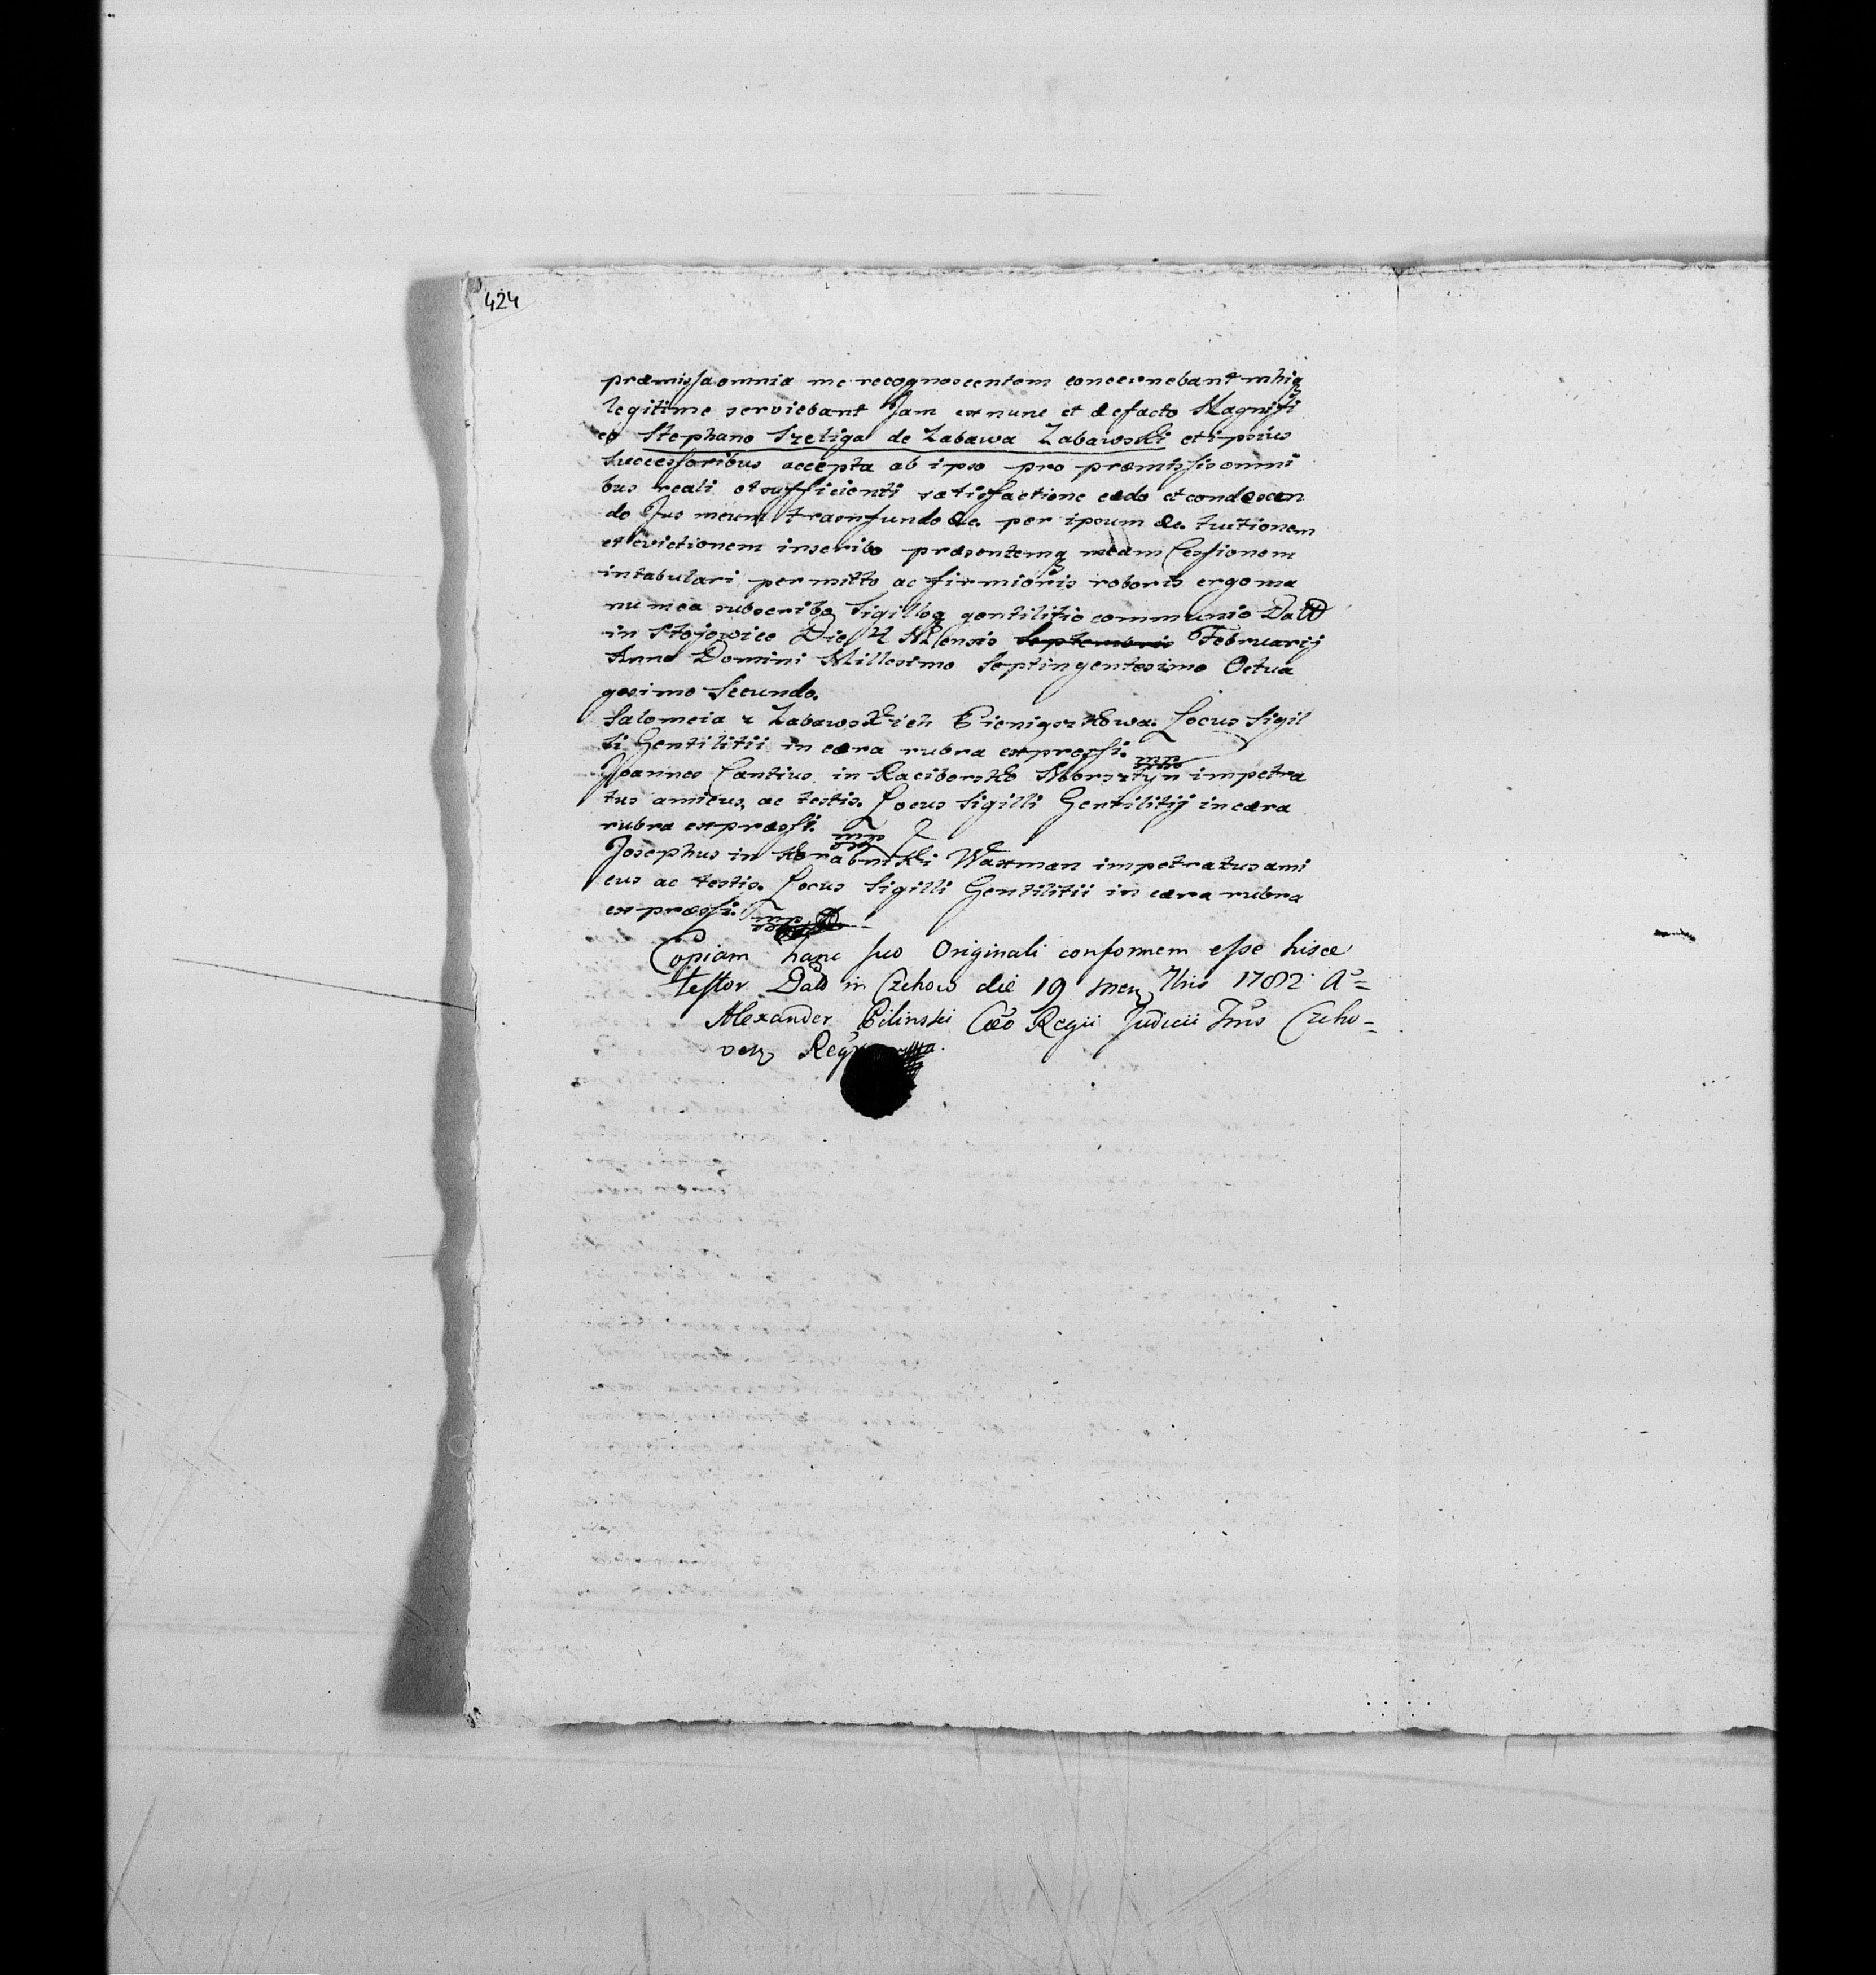 424
præmissa omnia me recognoscentem concernebant mihiq
legitime serviebant Jam ex nunc et de facto Magnifi
co Stephano Szeliga de Zabawa Zabawski et ipsius
Successoribus accepta ab ipso pro præmissis omni
bus reali et sufficienti satisfactione cedo et condescen
do Jus meum transfundo &c. per ipsum &c. tuitionem
et evictionem inscribo præsentemq meam Cessionem
intabulari permitto ac firmioris roboris ergo ma
nu mea subscribo Sigilloq gentilitio communio Datt
in Stojowice Die 4 Mensis Septembris Februarij
Anno Domini Millesimo Septingentesimo Octua
gesimo Secundo.
Salomeia z Zabawskich Pieniążkowa. Locus Sigil
li Gentilitii in cera rubra expressi. mp
Joannes Cantius in Raciborsko Morsztyn impetra
tus amicus, ac testis. Locus Sigilli Gentilitij in cera
rubra expressi. mp
Josephus in Korabniki Waxman impetratus ami
cus ac testis. Locus Sigilli Gentilitii in cera rubra
expressi. mp
Copiam hanc suo Originali conformem esse hisce
testor. Datt in Czchow die 19 Men 7bris 1782 Aº=
Alexander Bilinski Cæo Regii Judicii Trris Czcho=
ven